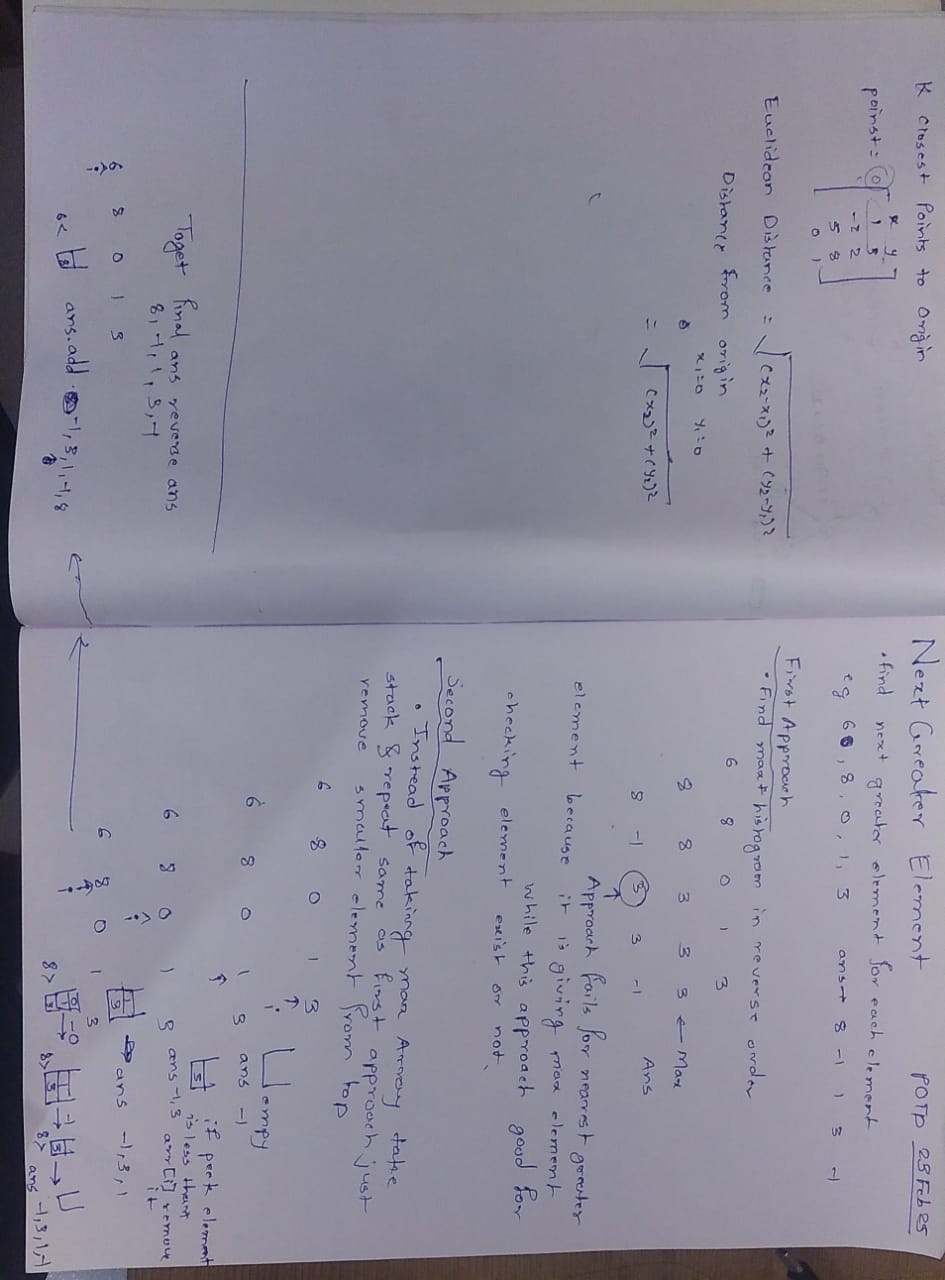 K Closest Points to Origin
poinst =
x y
0 1 3
-2 2
5 8
0 1
Euclidean Distance = √(x2-x1)² + (y2-y1)²
Distance from origin
x1=0 y1=0
= √(x2)² + (y2)²
Toget final ans reverse ans
8, -1, 1, 3, -1
6 8 0 1 3
i
6< 8 ans.add -1, 3, 1, -1, 8
Next Greater Element POTD 23 Feb 25
• find next greater element for each element
eg 6, 8, 0, 1, 3 ans → 8 -1 1 3 -1
First Approach
• Find max histogram in reverse order
6 8 0 1 3
8 8 3 3 3 ← Max
8 -1 3 3 -1 Ans
Approach fails for nearest greater
element because it is giving max element
While this approach good for
checking element exist or not.
Second Approach
• Instead of taking max Array take
stack & repeat same as first approach just
remove smaller element from top
6 8 0 1 3
i
empy
6 8 0 1 3 ans -1
3 if peek element
is less than
arr[i] remove
it
6 8 0 1 3 ans -1, 3
i
3 ans -1, 3, 1
6 8 0 1 3
i
8> 0 → 8> 1 → 3 → 8> ans -1, 3, 1, -1